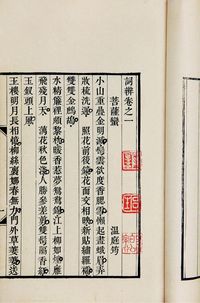 詞辨卷之一
菩薩蠻
温庭筠
小山重疊金明滅鬢雲欲度香顋雪懶起畫蛾眉弄
妝梳洗遲 照花前後鏡花面交相映新貼繡羅襦
雙雙金鷓鴣
水精簾裡頗黎枕暖香惹夢鴛鴦錦江上柳如烟雁
飛殘月天 藕花秋色淺人勝參差剪雙鬢隔香紅
玉釵頭上風
玉樓明月長相憶柳絲裊娜春無力門外草萋萋送